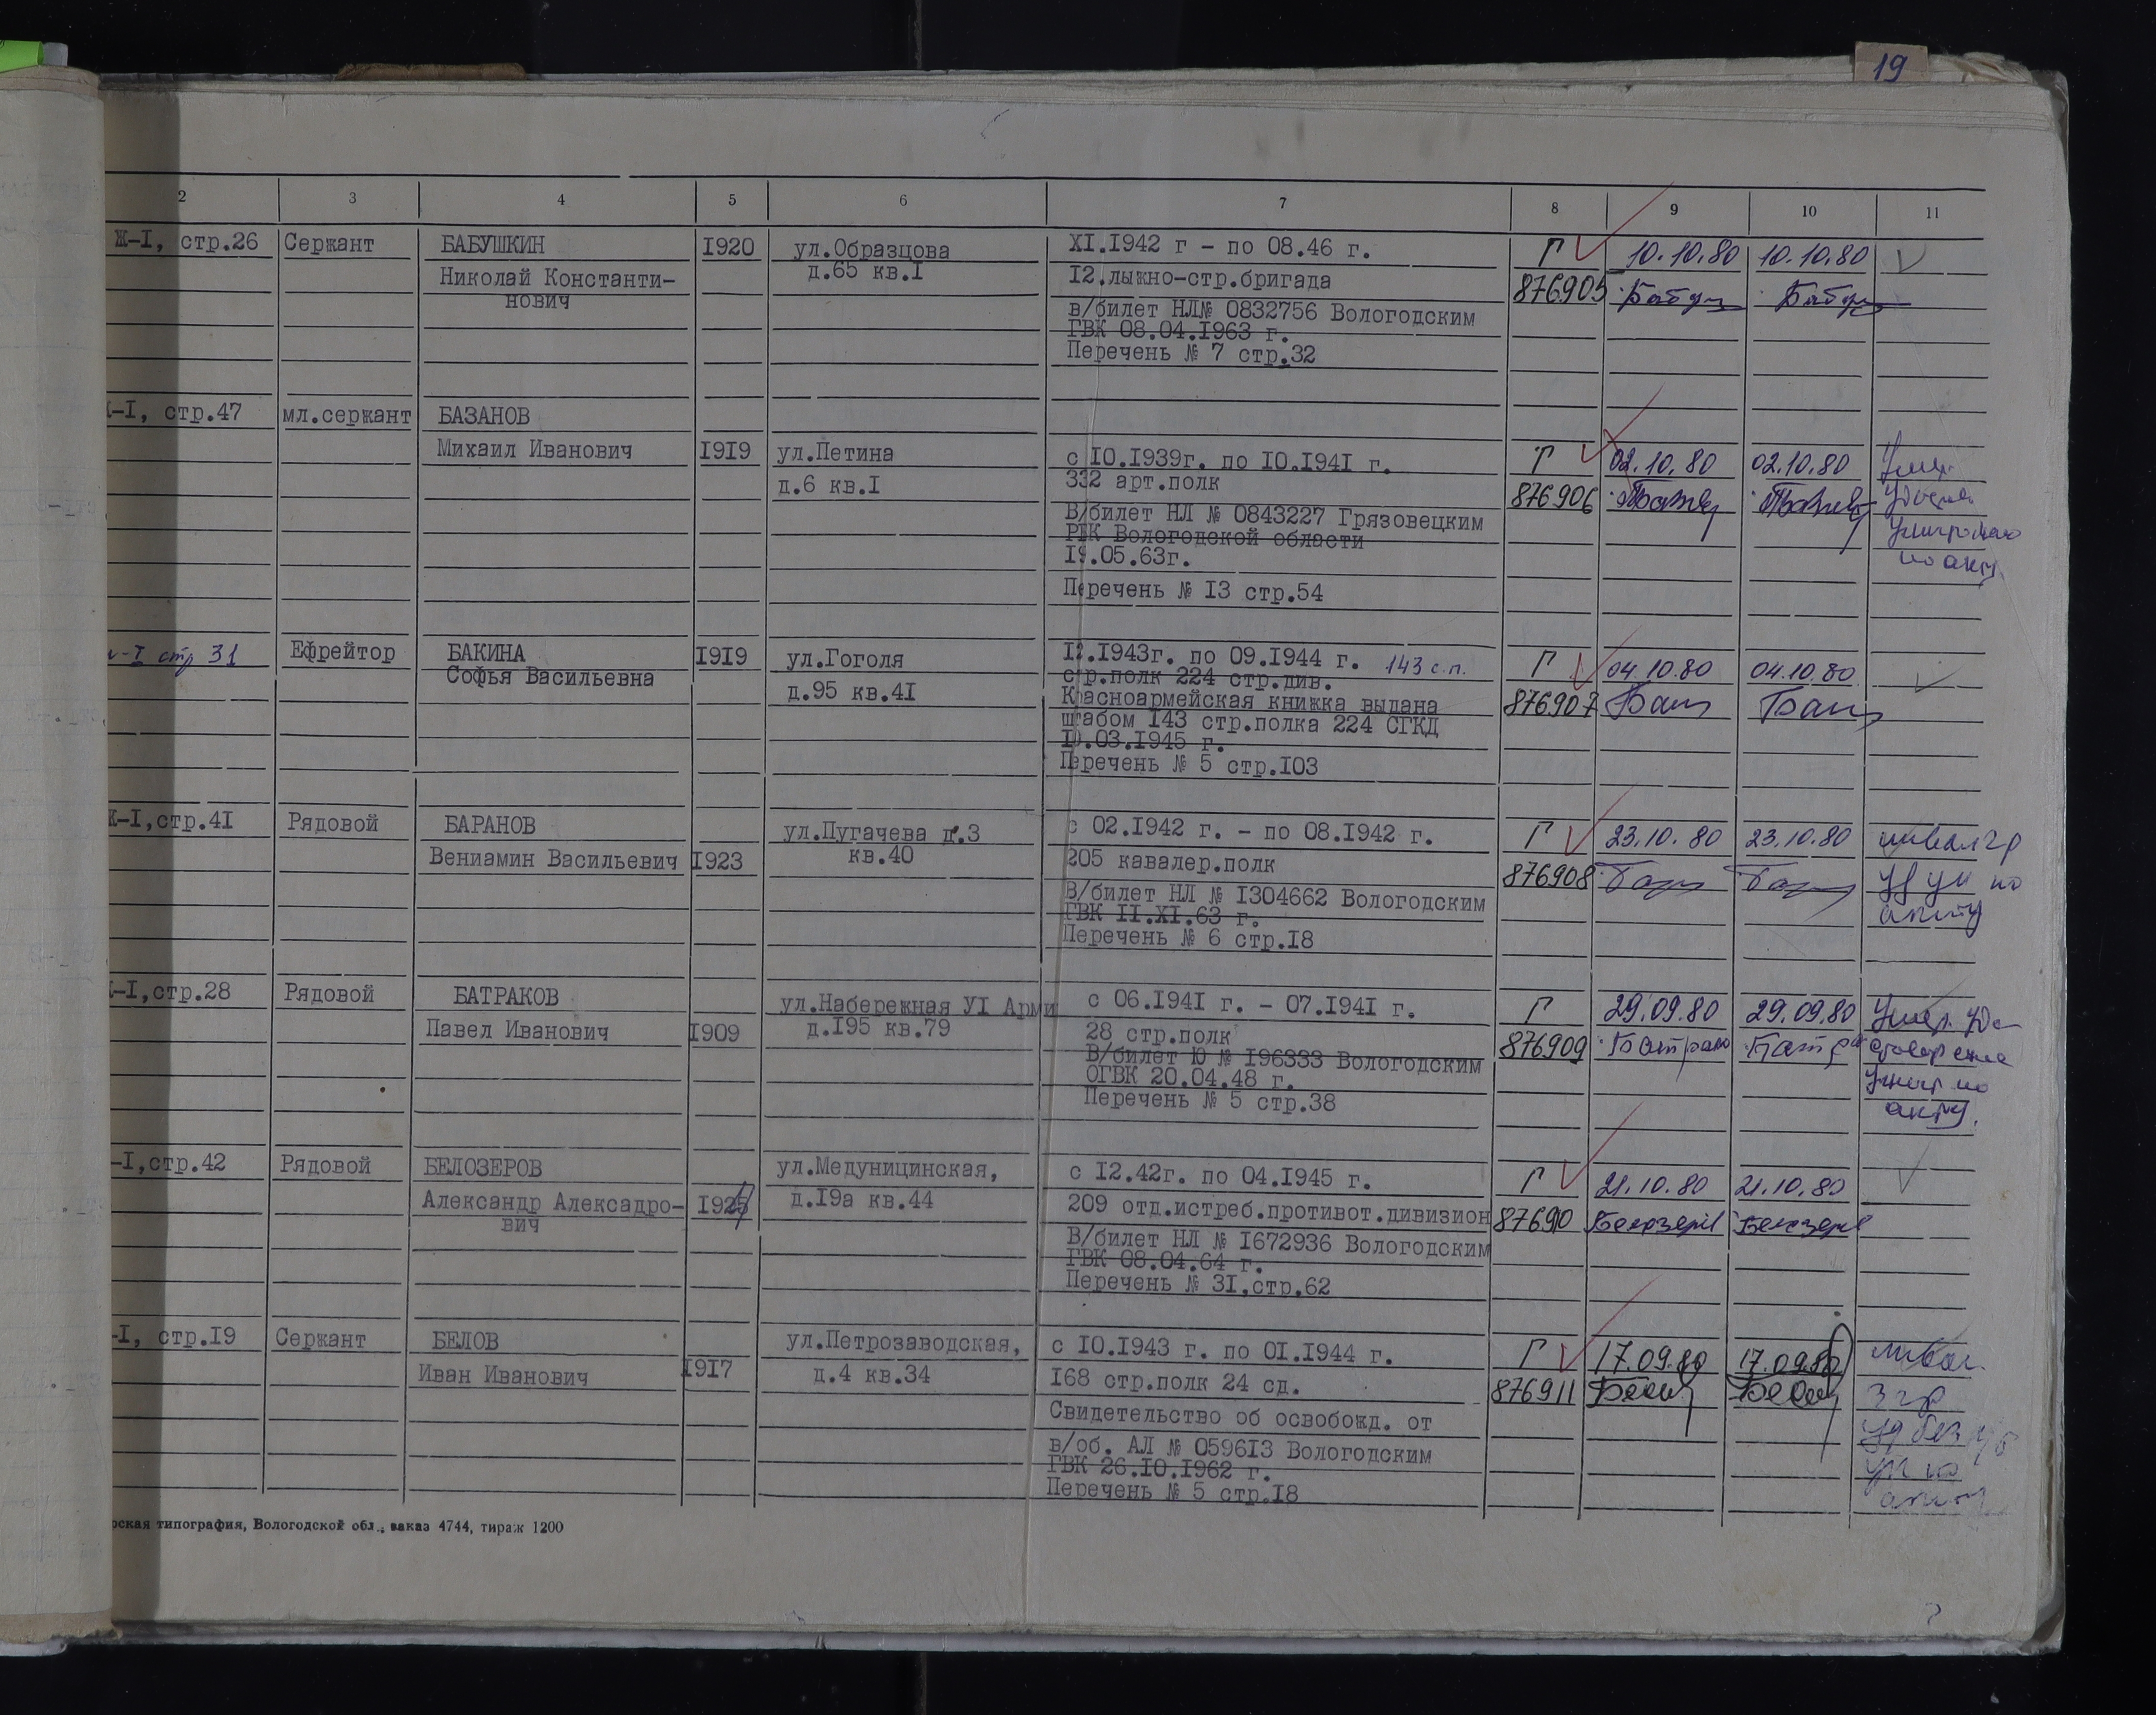 19
2 3 4 5 6 7 8 9 10 11
Ж-I, стр.26 Сержант БАБУШКИН I920 ул.Образцова XI.I942 г - по 08.46 г. Г 10.10.80 10.10.80
Николай Константи- д.65 кв.I I2.лыжно-стр.бригада 876905
нович
в/билет НЛ№ 0832756 Вологодским
ГВК 08.04.I963 г.
Перечень № 7 стр.32
-I, стр.47 мл.сержант БАЗАНОВ
Михаил Иванович I9I9 ул.Петина с I0.I939г. по I0.I94I г. Г 02.10.80 02.10.80 Умер.
д.6 кв.I 332 арт.полк 876906
В/билет НЛ № 0843227 Грязовецким
РВК Вологодской области
I9.05.63г. по акту.
Перечень № I3 стр.54
-I стр 31 Ефрейтор БАКИНА I9I9 ул.Гоголя I2.I943г. по 09.I944 г. 143 с.п. Г 04.10.80 04.10.80
Софья Васильевна д.95 кв.4I стр.полк 224 стр.див.
Красноармейская книжка выдана 876907
штабом I43 стр.полка 224 СГКД
I0.03.I945 г.
Перечень № 5 стр.I03
Ж-I,стр.4I Рядовой БАРАНОВ ул.Пугачева д.3 с 02.I942 г. - по 08.I942 г. Г 23.10.80 23.10.80
Вениамин Васильевич I923 кв.40 205 кавалер.полк 876908
В/билет НЛ № I304662 Вологодским акту
ГВК II.XI.63 г.
Перечень № 6 стр.I8
-I,стр.28 Рядовой БАТРАКОВ ул.Набережная УI Арми с 06.I94I г. - 07.I94I г. Г 29.09.80 29.09.80 Умер.
Павел Иванович I909 д.I95 кв.79 28 стр.полк 876909
В/билет Ю № I96333 Вологодским
ОГВК 20.04.48 г.
Перечень № 5 стр.38 акту.
-I,стр.42 Рядовой БЕЛОЗЕРОВ ул.Медуницинская, с I2.42г. по 04.I945 г. Г 21.10.80 21.10.80
Александр Алексадро- д.I9а кв.44 209 отд.истреб.противот.дивизион 876910 Белозеров Белозеров
вич
В/билет НЛ № I672936 Вологодским
ГВК 08.04.64 г.
Перечень № 3I,стр,62
-I, стр.I9 Сержант БЕЛОВ ул.Петрозаводская, с I0.I943 г. по 0I.I944 г. Г 17.09.80 17.09.80
Иван Иванович I9I7 д.4 кв.34 I68 стр.полк 24 сд. 876911 3 гр
Свидетельство об освобожд. от
в/об. АЛ № 0596I3 Вологодским
ГВК 26.I0.I962 г.
Перечень № 5 стр.I8
рская типография, Вологодской обл., заказ 4744, тираж 1200